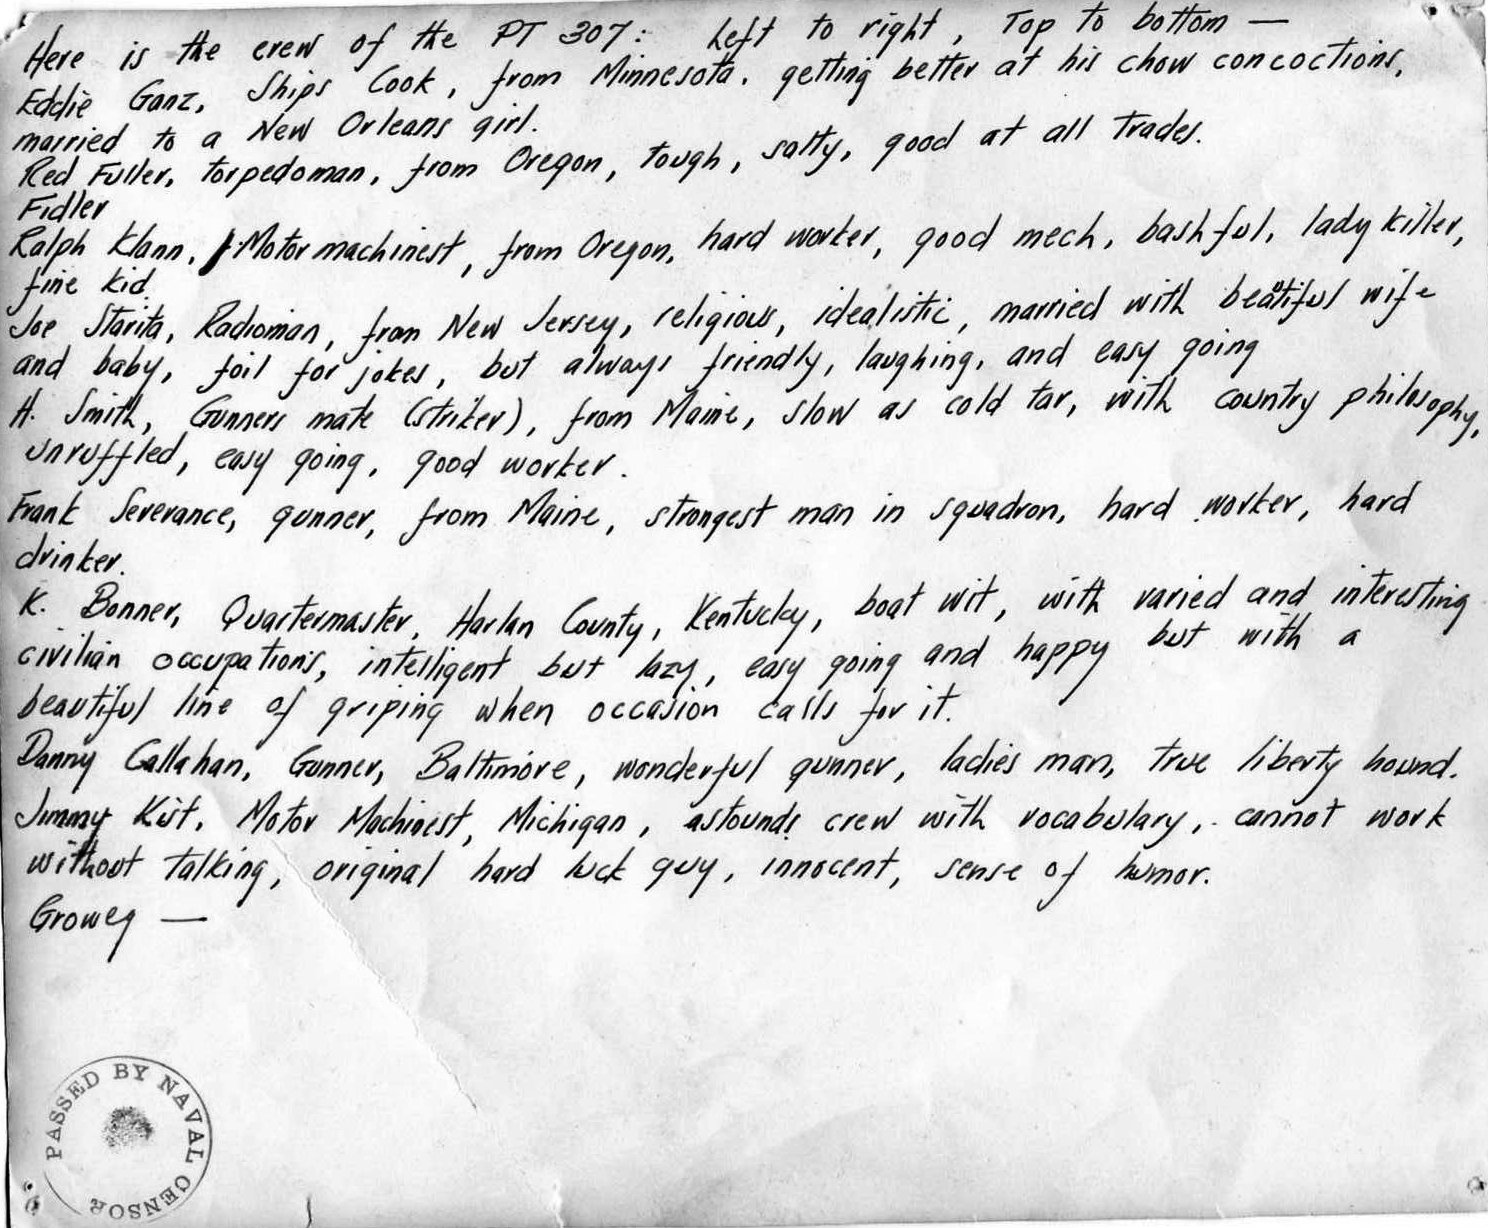 Here is the crew of the PT 307: Left to right, Top to bottom —
Eddie Ganz, Ships Cook, from Minnesota. getting better at his chow concoctions,
married to a New Orleans girl.
Red Fuller, torpedoman, from Oregon, tough, salty, good at all trades.
Fidler
Ralph Klann, Motor machinest, from Oregon, hard worker, good mech, bashful, lady killer,
fine kid.
Joe Starita, Radioman, from New Jersey, religious, idealistic, married with beautiful wife
and baby, foil for jokes, but always friendly, laughing, and easy going
H. Smith, Gunners mate (striker), from Maine, slow as cold tar, with country philosophy,
unruffled, easy going, good worker.
Frank Severance, gunner, from Maine, strongest man in squadron, hard worker, hard
drinker.
K. Bonner, Quartermaster, Harlan County, Kentucky, boat wit, with varied and interesting
civilian occupations, intelligent but lazy, easy going and happy but with a
beautiful line of griping when occasion calls for it.
Danny Callahan, Gunner, Baltimore, wonderful gunner, ladies man, true liberty hound.
Jimmy Kist, Motor Machinest, Michigan, astounds crew with vocabulary, cannot work
without talking, original hard luck guy, innocent, sense of humor.
Groweg —
PASSED BY NAVAL CENSOR